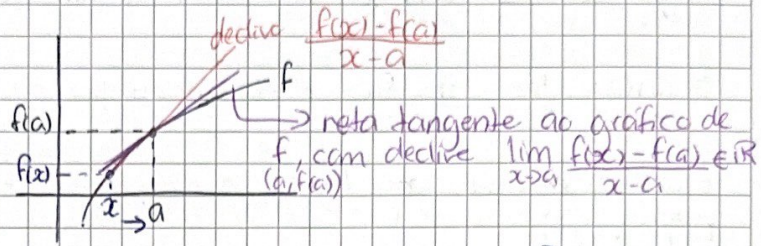 declive (f(x)-f(a))/(x-a)
f
f(a)
reta tangente ao gráfico de
f(x)
f, com declive lim x→a (f(x)-f(a))/(x-a) ∈ ℝ
(a, f(a))
x → a